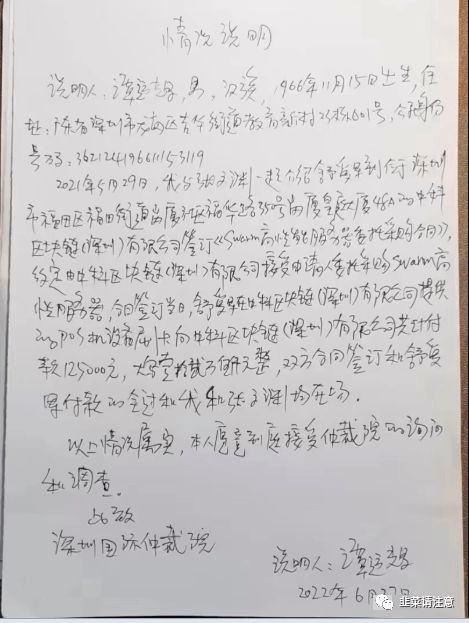 情况说明
说明人：谭运良，男，汉族，1966年11月15日出生，住
址：广东省深圳市龙岗区吉华街道教育新村23栋601号，公民身份
号码：362124196611153119
2021年5月29日，我与张文渊一起介绍舒俊军到位于深圳
市福田区福田街道岗厦社区福华路350号岗厦皇庭大厦
区块链（深圳）有限公司签订《Swarm高性能服务器委托采购合同》，
约定由牛科区块链（深圳）有限公司接受申请人委托采购Swarm高
性服务器，合同签订当日，舒俊军在牛科区块链（深圳）有限公司提供
的POS机设备刷卡向牛科区块链（深圳）有限公司共计付
款125000元，大写壹拾贰万伍仟元整，双方合同签订和舒俊
军付款的全过和我和张文渊均在场。
以上情况属实，本人愿意到庭接受仲裁院的询问
和调查。
此致
深圳国际仲裁院
说明人：谭运良
2022年6月27日
韭菜请注意